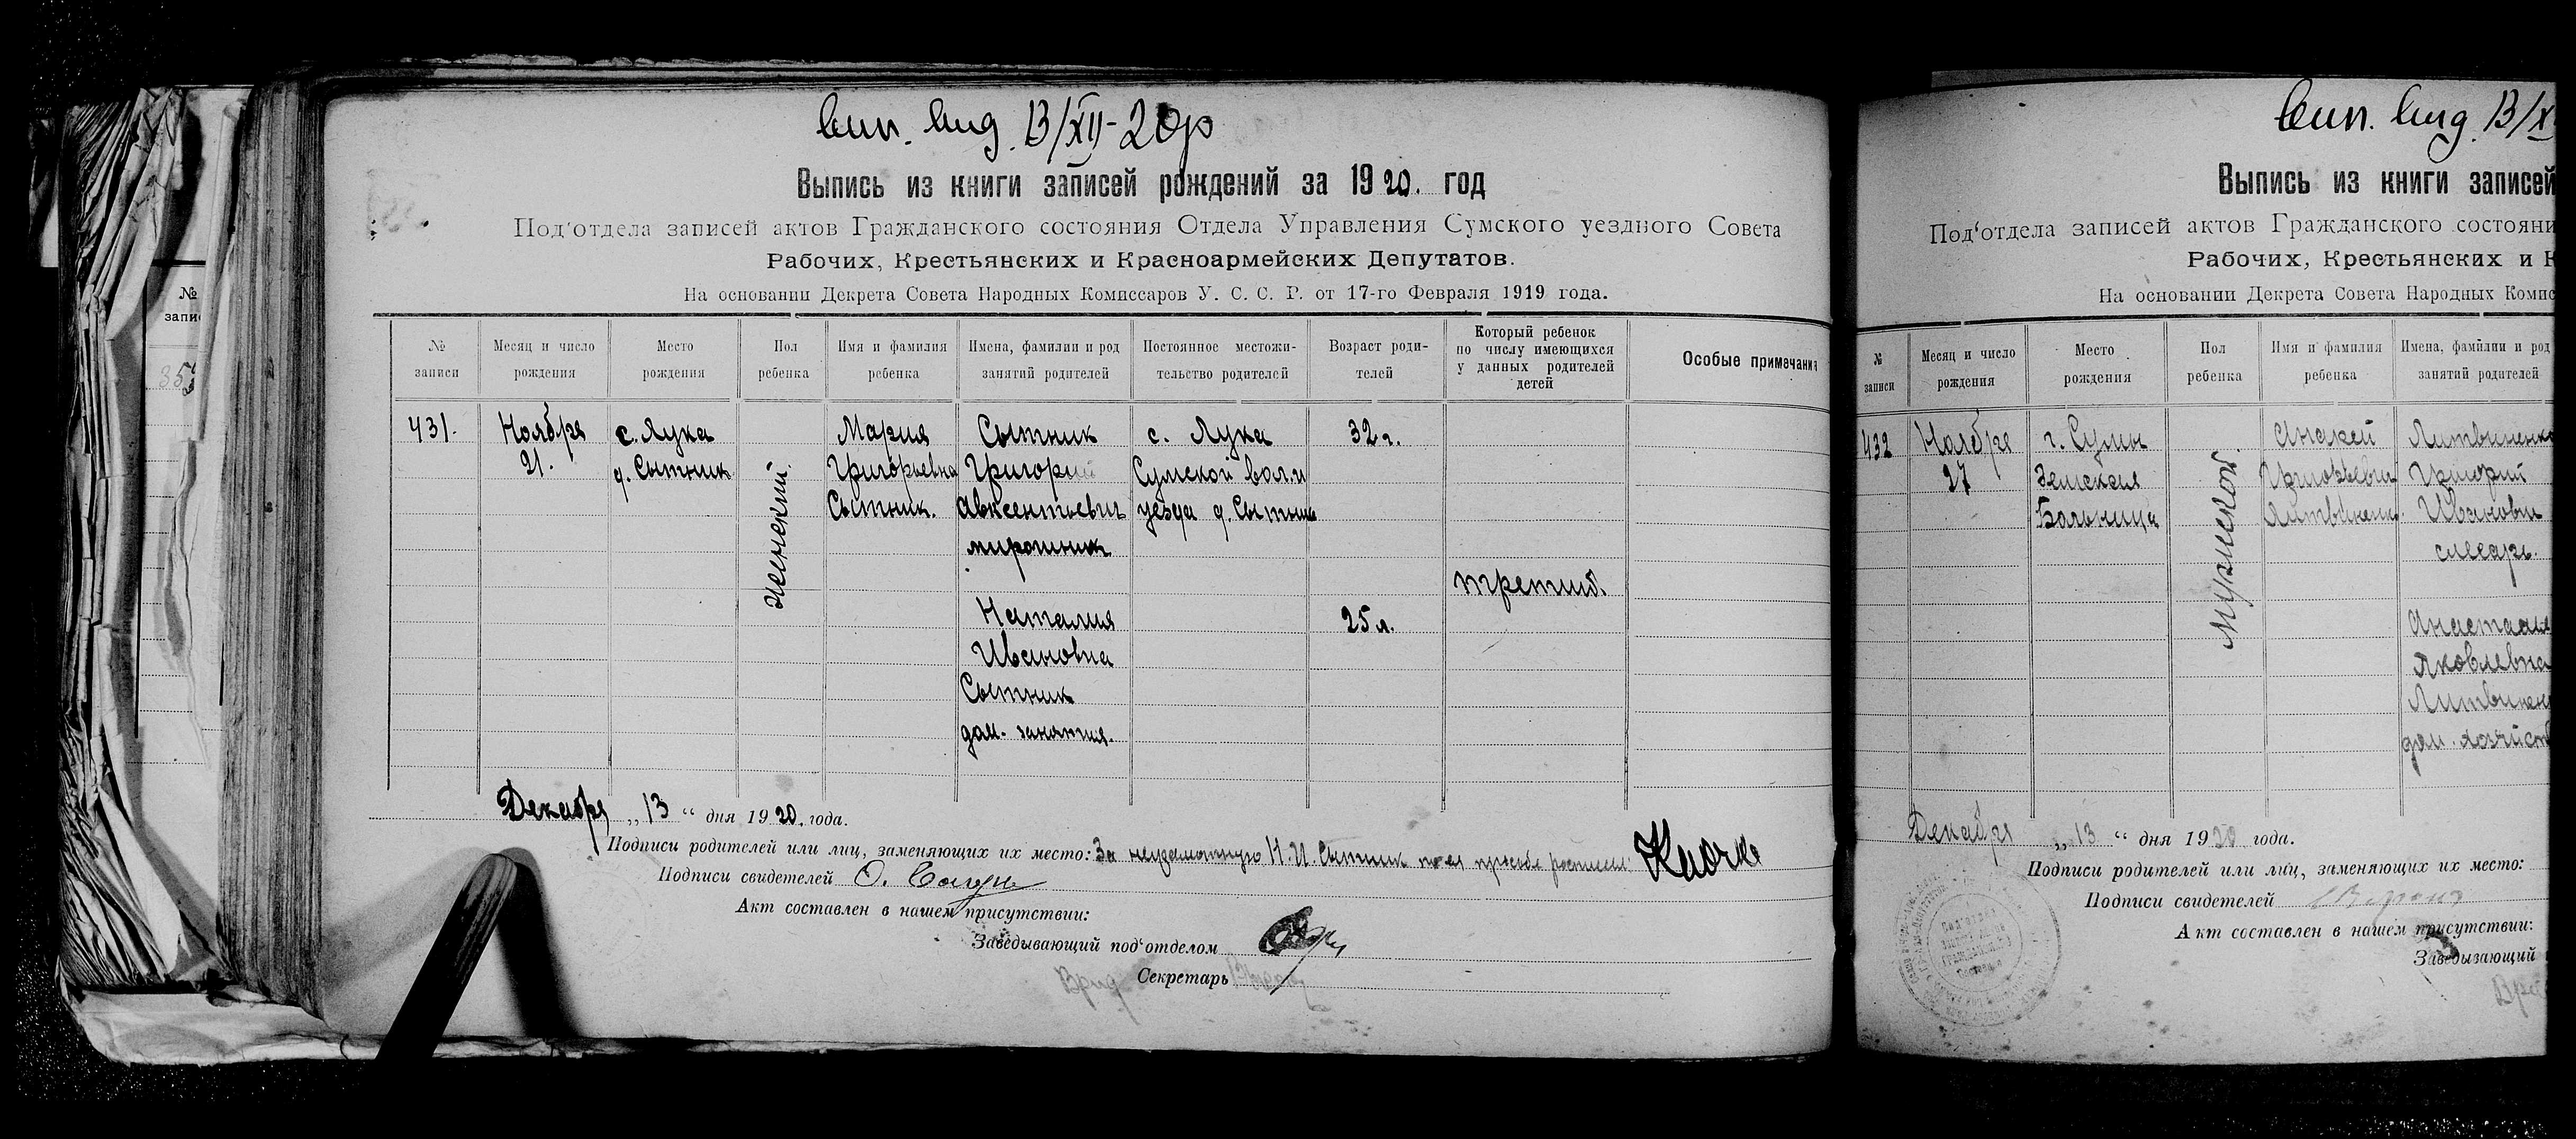 13/XII-20р
Выпись из книги записей рождений за 1920. год
Под'отдела записей актов Гражданского состояния Отдела Управления Сумского уездного Совета
Рабочих, Крестьянских и Красноармейских Депутатов.
На основании Декрета Совета Народных Комиссаров У. С. С. Р. от 17-го Февраля 1919 года.
№ записи
Месяц и число рождения
Место рождения
Пол ребенка
Имя и фамилия ребенка
Имена, фамилии и род занятий родителей
Постоянное местожительство родителей
Возраст родителей
Который ребенок по числу имеющихся у данных родителей детей
Особые примечания
431.
Ноября
21.
с. Лука
д. Сытник
женский.
Мария
Григорьевна
Сытник.
Сытник
Григорий
Авксентьевич
мирошник
Наталия
Ивановна
Сытник
дом. занятия.
с. Лука
Сумской вол. и
уезда д. Сытник
32 г.
25 л.
третий.
Декабря „13“ дня 1920. года.
Подписи родителей или лиц, заменяющих их место: За неграмотную Н. И. Сытник по ея просьбе
Подписи свидетелей О.
Акт составлен в нашем присутствии:
Заведывающий под'отделом
Врид Секретарь
№
запи
13/X
Выпись из книги записей
Под'отдела записей актов Гражданского состояни
Рабочих, Крестьянских и К
На основании Декрета Совета Народных Комис
№ записи
Месяц и число рождения
Место рождения
Пол ребенка
Имя и фамилия ребенка
Имена, фамилии и род занятий родителей
432
Ноября
27
г. Сумы
Земская
Больница
мужской.
Григорьевич
Литвиненко
Литвиненко
Григорий
Иванович
слесарь.
Анастасия
Яковлевна
Литвинен
дом. хозяйств
Декабря „13“ дня 1920 года.
Подписи родителей или лиц, заменяющих их место:
Подписи свидетелей
Акт составлен в нашем присутствии:
Заведывающий